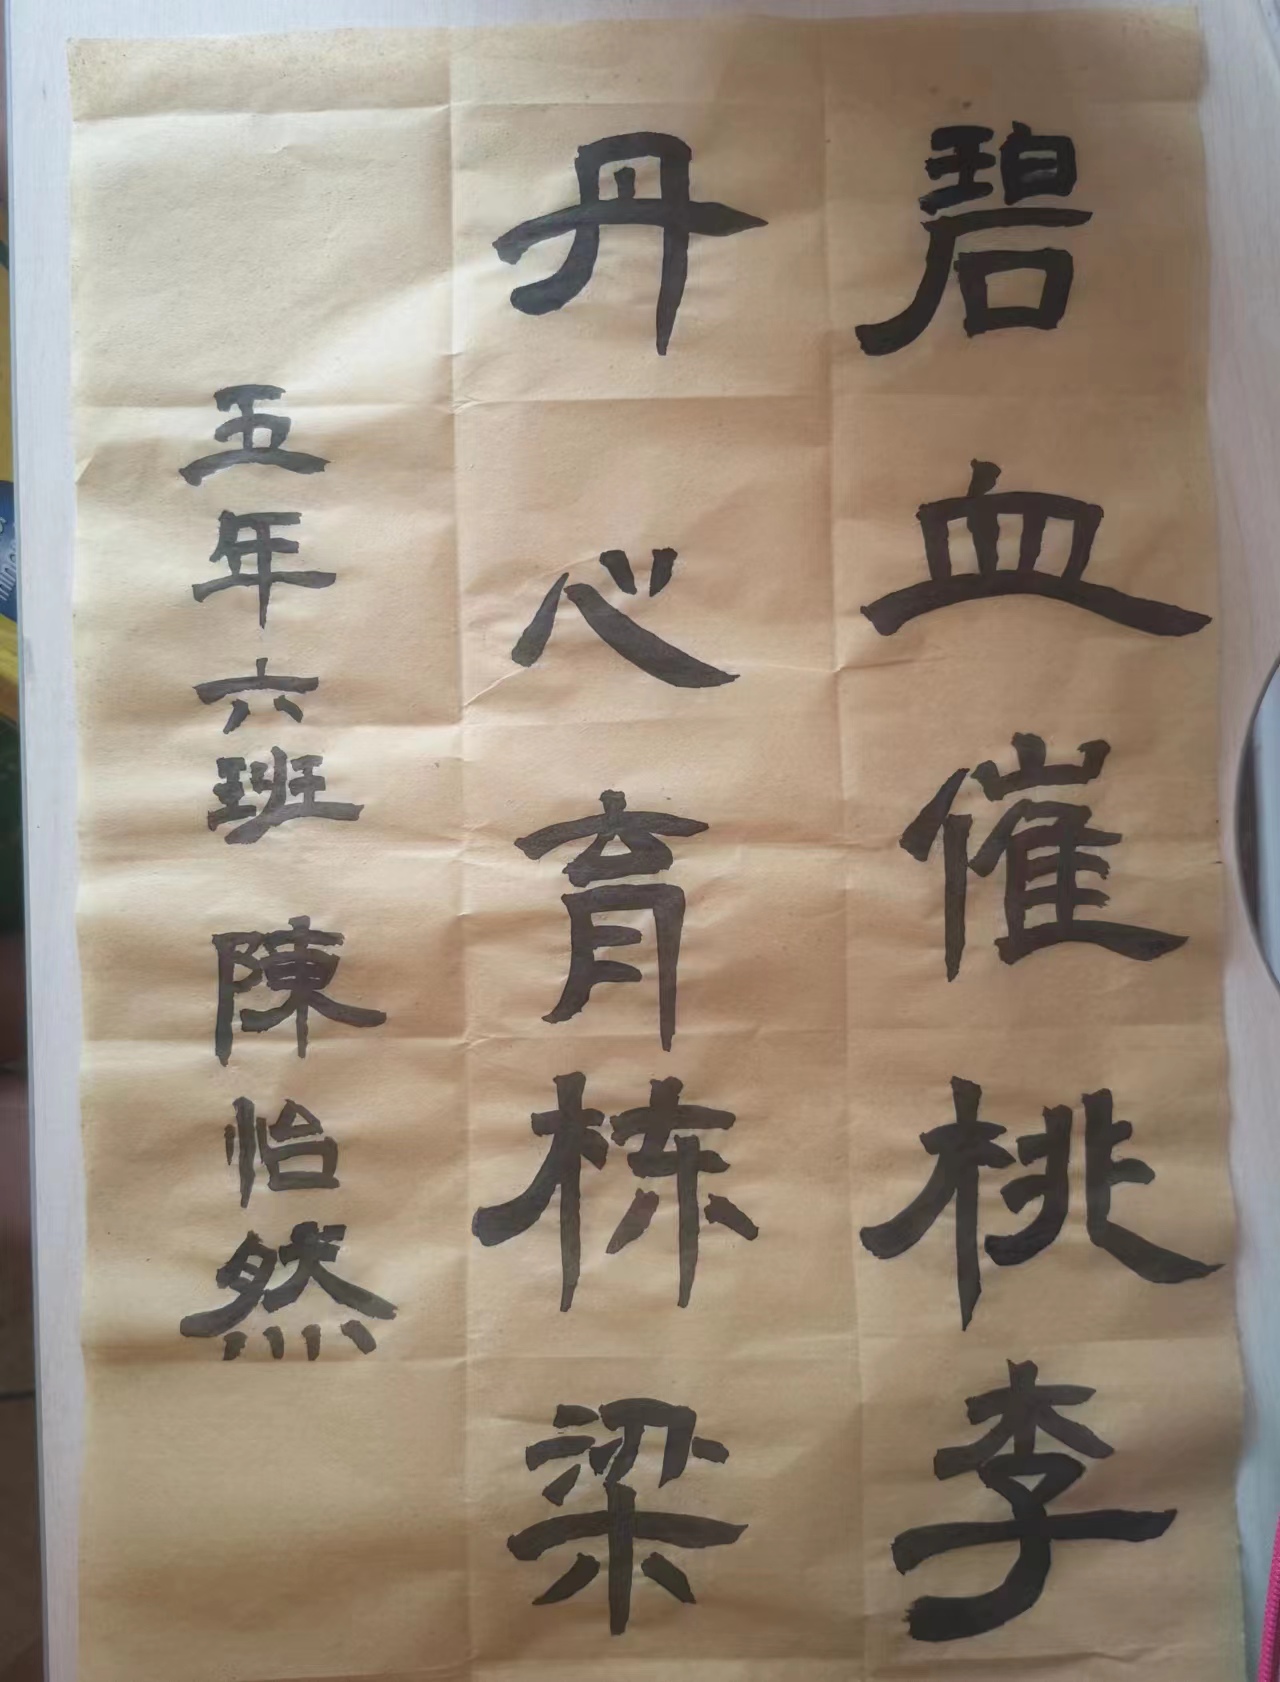 碧血催桃李
丹心育栋梁
五年六班 陳怡然